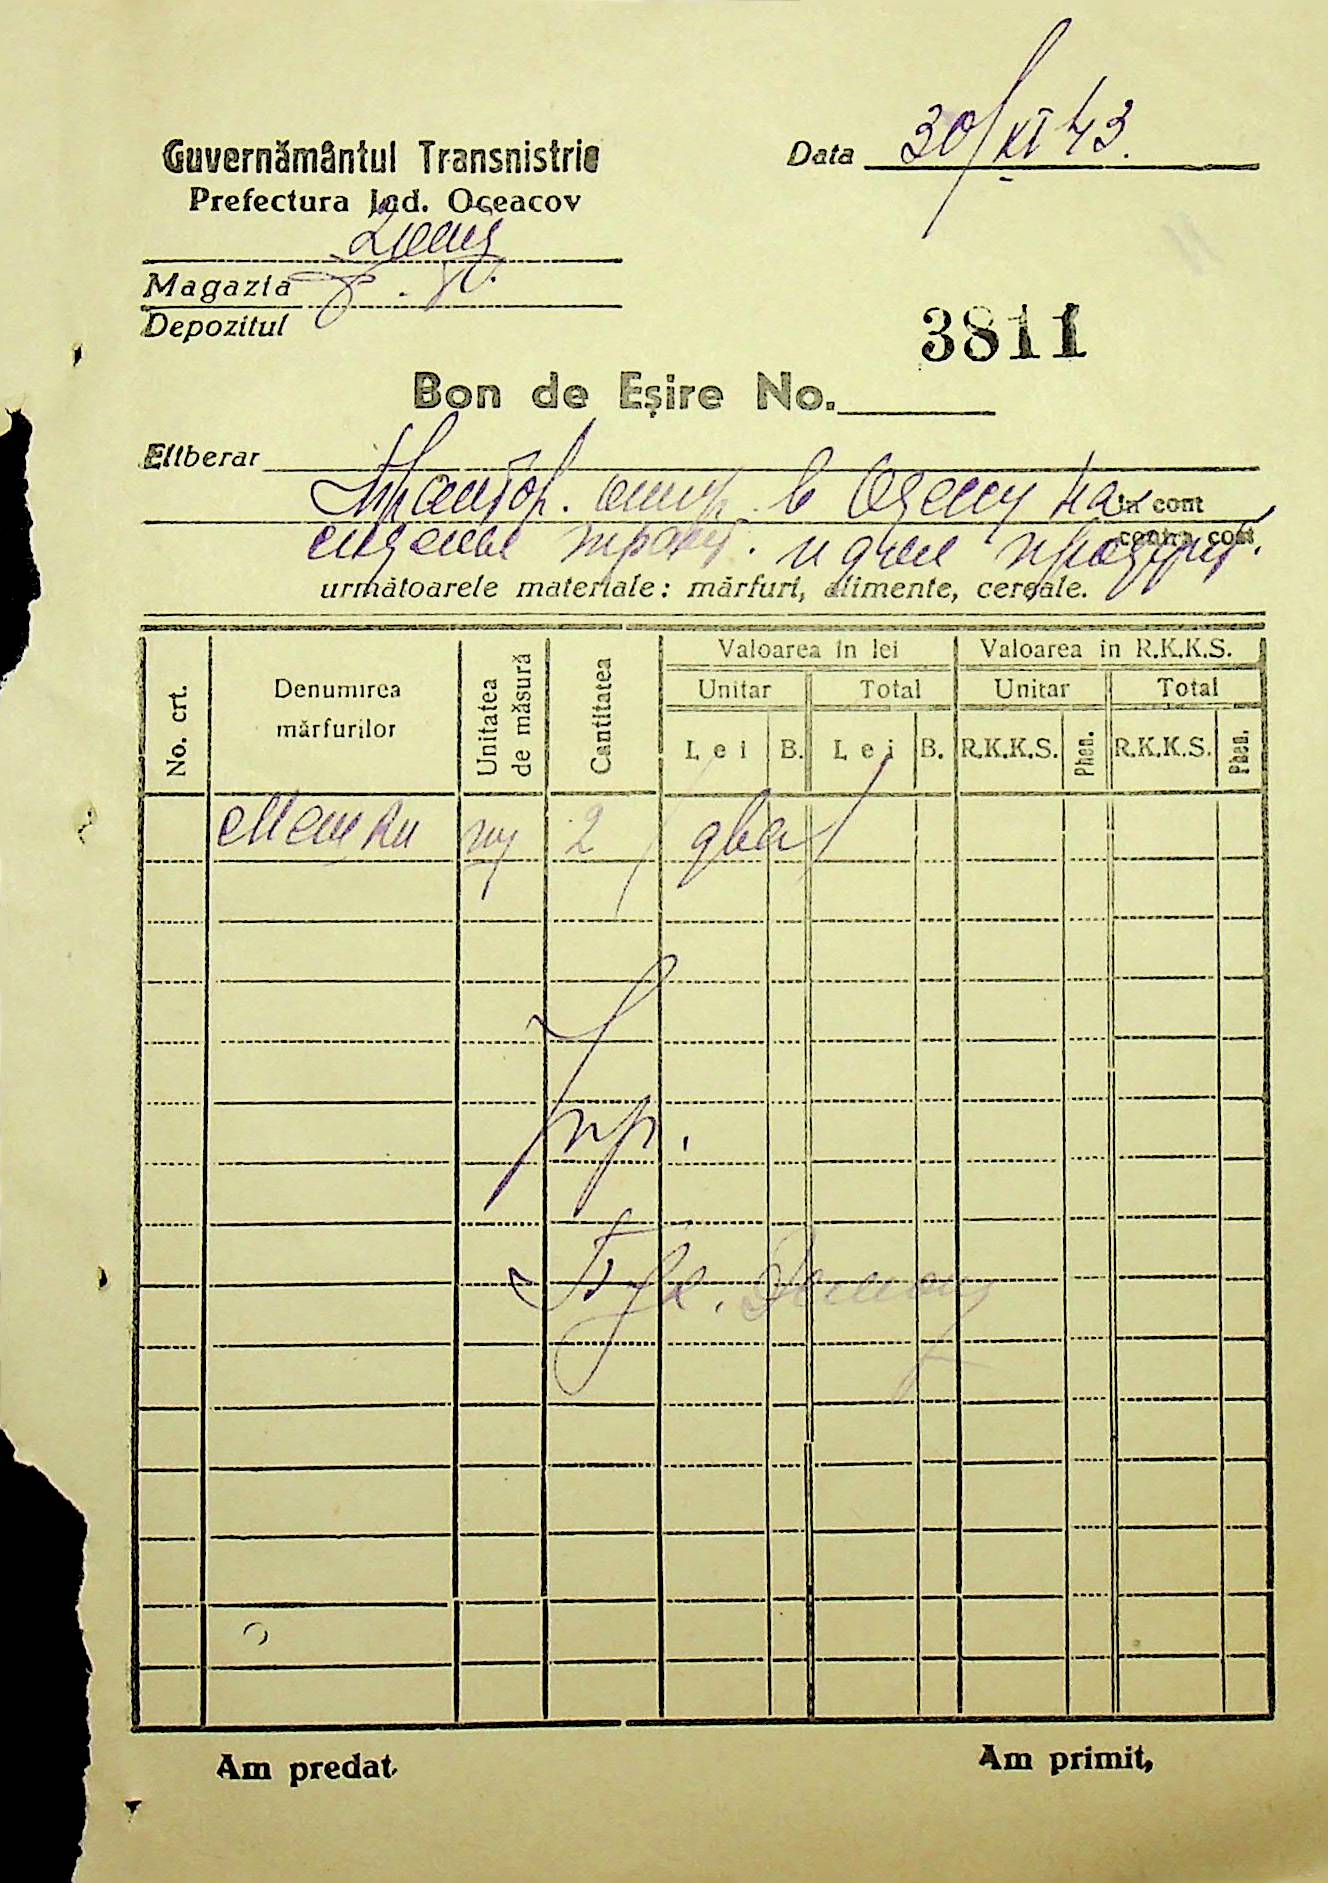 Data 30/XI 43.
Guvernământul Transnistrie
Prefectura Jud. Oceacov
Magazia
Depozitul
3811
Bon de Eșire No.
Eliberar
в Одессу на in cont
contra cost
următoarele materiale: mărfuri, alimente, cereale.
No. crt.
Denumirea mărfurilor
Unitatea de măsură
Cantitatea
Valoarea în lei
Valoarea in R.K.K.S.
Unitar Total Unitar Total
Lei B. Lei B. R.K.K.S. Phen. R.K.K.S. Phen.
Мешки шт 2 /два/
Am predat.
Am primit,